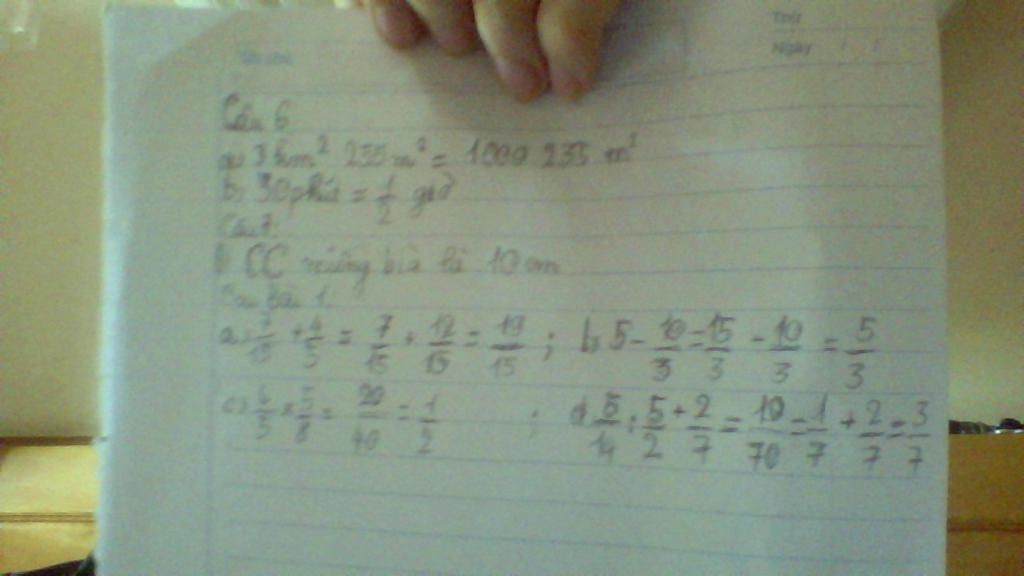 Thứ
Ngày / /
Câu 6
a) 3 km² 235 m² = 1000 235 m²
b) 30 phút = 1/2 giờ
Câu 7.
CC miếng bìa là 10 cm
bài 1.
a) 7/15 + 4/5 = 7/15 + 12/15 = 19/15 ; b) 5 - 10/3 = 15/3 - 10/3 = 5/3
c) 4/5 x 5/8 = 20/40 = 1/2 ; d) 5/14 : 5/2 + 2/7 = 10/70 = 1/7 + 2/7 = 3/7